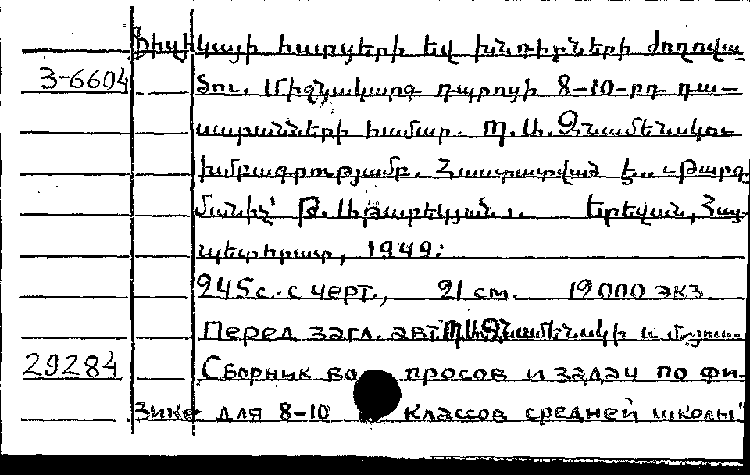 Ֆիզիկայի հարցերի եվ խնդիրների ժողովա
3-6604 ծու. Միջնակարգ դպրոցի 8-10-րդ դա-
սարանների համար. Պ. Ա. Զնամենսկու
խմբագրությամբ. Հաստատված է... Թարգ.
մանիչ՝ Թ. Երեվան, Հայ-
պետհրատ, 1949:
245 с. с черт., 21 см. 19000 экз
Перед загл. авт. Պ.Ա. Զնամենսկի и
29284 Сборник вопросов и задач по фи-
зике для 8-10 классов средней школы"